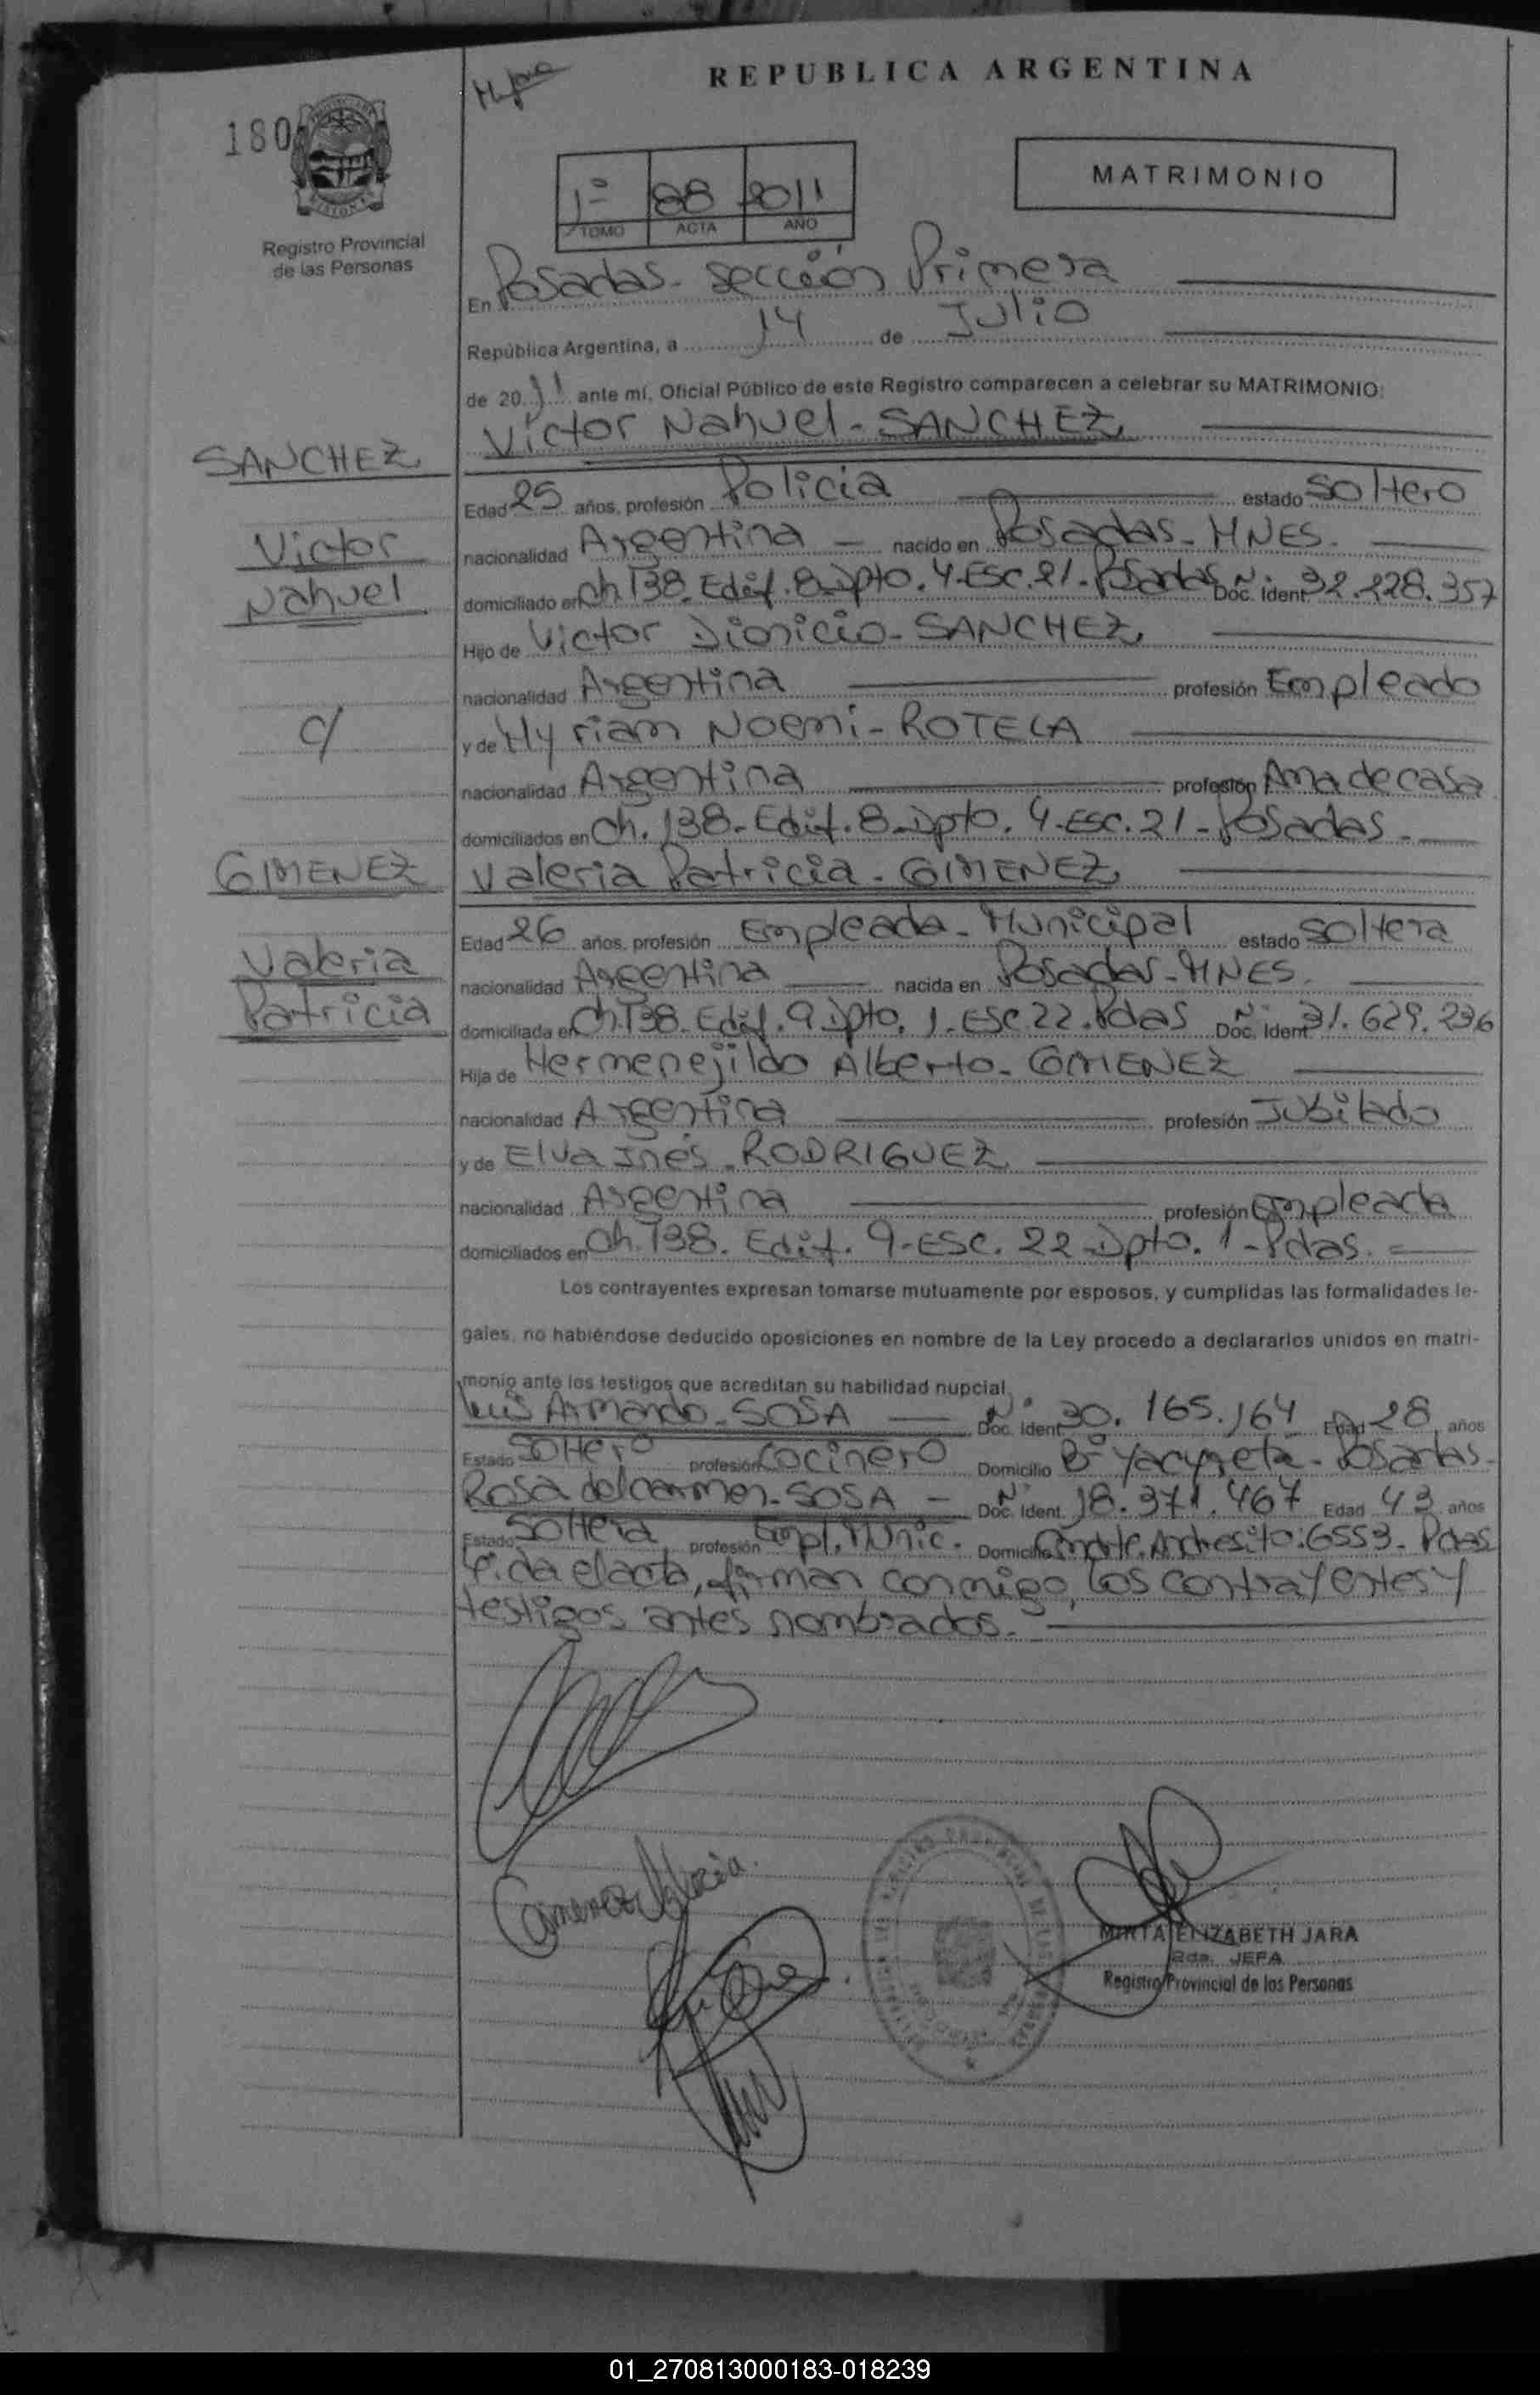 REPUBLICA ARGENTINA
180
MATRIMONIO
1º 88 2011
TOMO ACTA AÑO
Registro Provincial
de las Personas
En Posadas - sección Primera
República Argentina, a 14 de Julio
de 2011 ante mí, Oficial Público de este Registro comparecen a celebrar su MATRIMONIO:
Victor Nahuel - SANCHEZ
SANCHEZ
Edad 25 años, profesión Policia estado soltero
Victor
nacionalidad Argentina - nacido en Posadas - MNES.
Nahuel
domiciliado en Ch. 138. Edif. 8. Dpto. 4. Esc. 21 - Posadas Nº Doc. Ident. 32.228.357
Hijo de Victor Dionicio - SANCHEZ
nacionalidad Argentina profesión Empleado
c/
y de Myriam Noemi - ROTELA
nacionalidad Argentina profesión Ama de casa
domiciliados en Ch. 138 - Edif. 8 - Dpto. 4 - Esc. 21 - Posadas -
GIMENEZ
Valeria Patricia - GIMENEZ
Edad 26 años, profesión Empleada - Municipal estado soltera
Valeria
nacionalidad Argentina nacida en Posadas - MNES.
Patricia
domiciliada en Ch. 138. Edif. 9 Dpto. 1. Esc 22. Pdas Nº Doc. Ident. 31.629.236
Hija de Hermenejildo Alberto - GIMENEZ
nacionalidad Argentina profesión Jubilado
y de Elva Inés - RODRIGUEZ
nacionalidad Argentina profesión Empleada
domiciliados en Ch. 138. Edif. 9 - Esc. 22 - Dpto. 1 - Pdas.
Los contrayentes expresan tomarse mutuamente por esposos, y cumplidas las formalidades le-
gales, no habiéndose deducido oposiciones en nombre de la Ley procedo a declararlos unidos en matri-
monio ante los testigos que acreditan su habilidad nupcial.
Luis Armando - SOSA Nº Doc. Ident. 30.165.164 Edad 28 años
Estado Soltero profesión Cocinero Domicilio Bº Yacyretá - Posadas -
Rosa del carmen - SOSA - Nº Doc. Ident. 18.371.467 Edad 43 años
Estado Soltera profesión Empl. Munic. Domicilio Cmdte. Andresito: 6553 - Pdas
Leida el acta, firman conmigo, los contrayentes y
testigos antes nombrados.
Gimenez Valeria.
MIRTA ELIZABETH JARA
2da. JEFA
Registro Provincial de las Personas
01_270813000183-018239